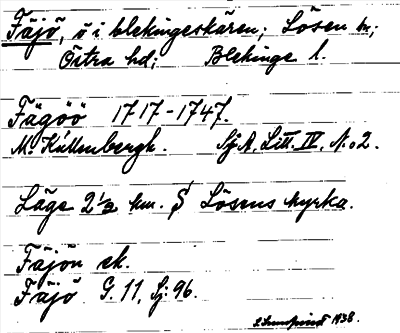 Fäjö, ö i blekingeskären; Lösen sn;
Östra hd; Blekinge l.
Fägöö 1717-1747.
M. Kullenbergh. Sj.A. Litt. IV, No 2.
Läge 2½ km. S Lösens kyrka.
Fäjön ek.
Fäjö G. 11, Sj: 96.
1938.